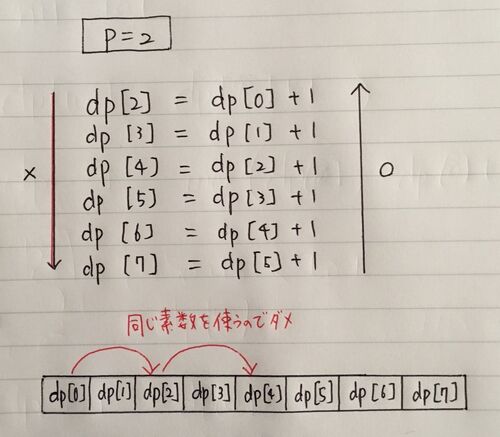 P=2
dp[2] = dp[0]+1
dp[3] = dp[1]+1
× dp[4] = dp[2]+1 ○
dp[5] = dp[3]+1
dp[6] = dp[4]+1
dp[7] = dp[5]+1
同じ素数を使うのでダメ
dp[0] dp[1] dp[2] dp[3] dp[4] dp[5] dp[6] dp[7]